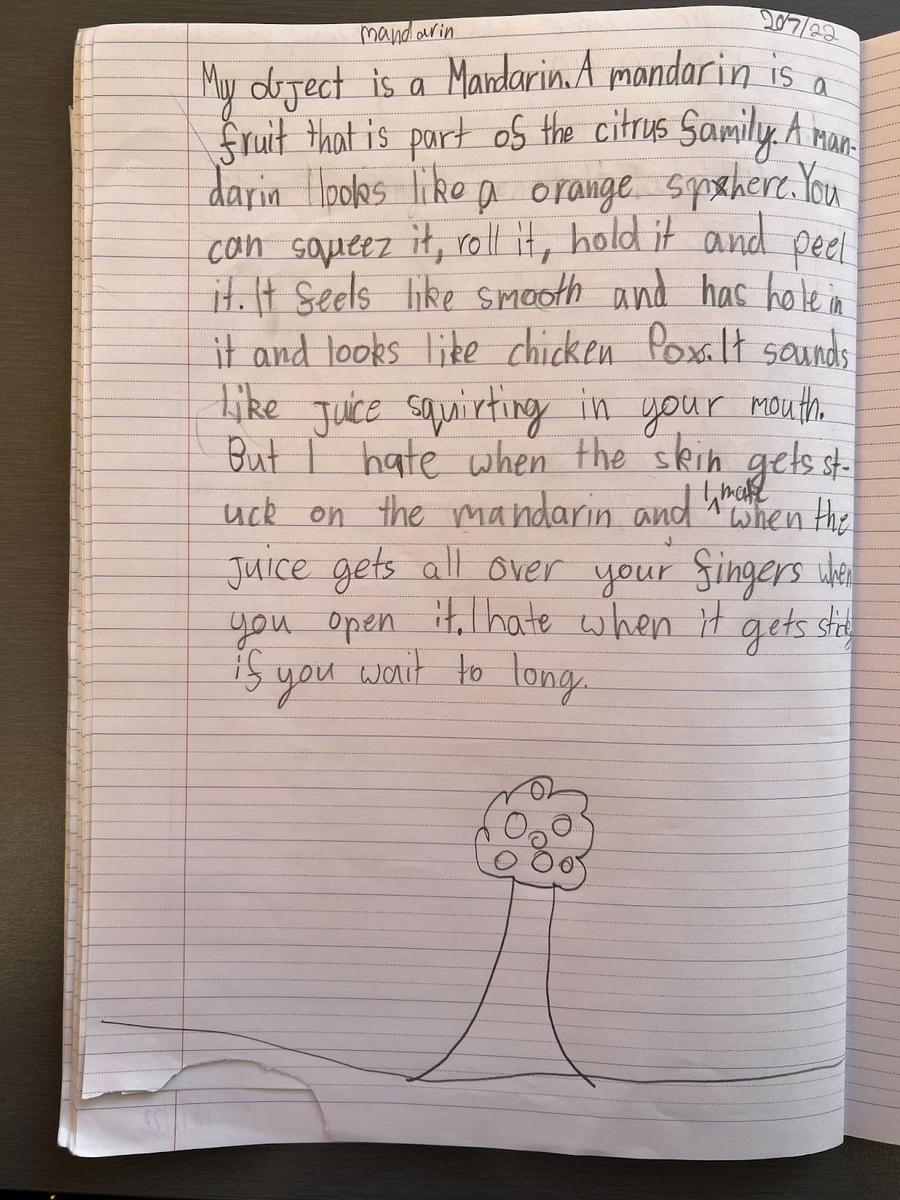 mandarin
20/7/22
My object is a Mandarin. A mandarin is a
fruit that is part of the citrus family. A man-
darin looks like a orange sphere. You
can squeez it, roll it, hold it and peel
it. It feels like smooth and has hole in
it and looks like chicken Pox. It sounds
Like juice squirting in your mouth.
But I hate when the skin gets st-
uck on the mandarin and I hate when the
juice gets all over your fingers when
you open it. I hate when it gets sticky
if you wait to long.